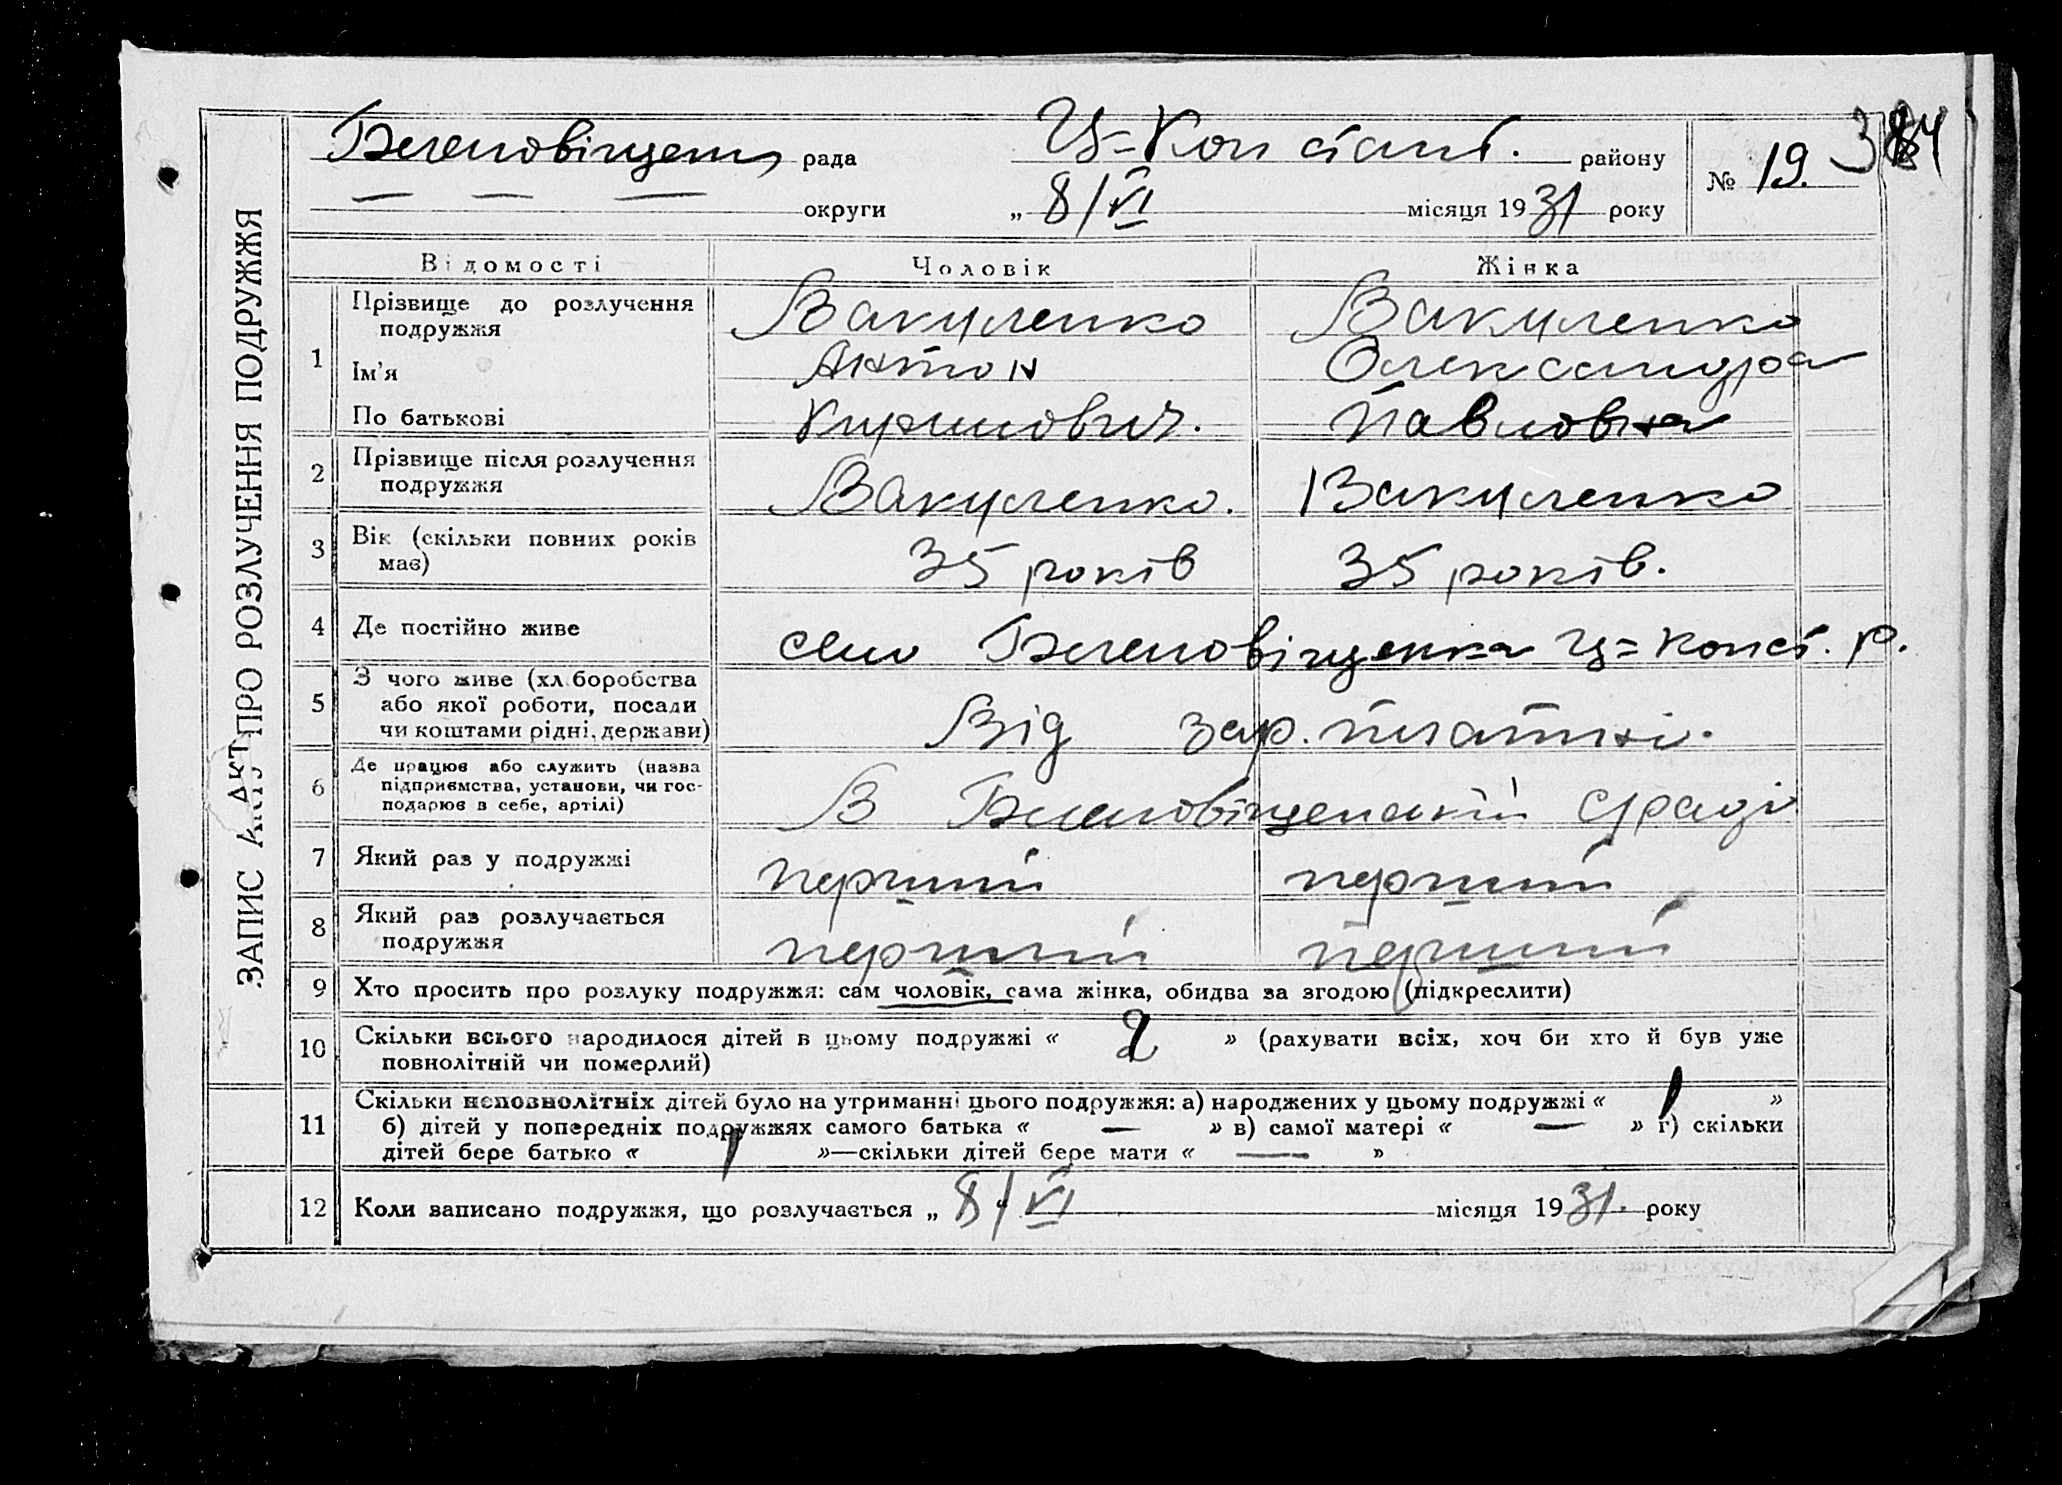 ЗАПИС АКТ ПРО РОЗЛУЧЕННЯ ПОДРУЖЖЯ
рада Ц=Констант. району № 19.
— — — округи „ 8/VI місяця 1931 року
Відомості Чоловік Жінка
1 Прізвище до розлучення подружжя Вакуленко Вакуленко
Ім'я Антон Олександра
По батькові Кирилович. Павловна
2 Прізвище після розлучення подружжя Вакуленко. Вакуленко
3 Вік (скільки повних років має) 35 років 35 років.
4 Де постійно живе село Ц=Конст. р.
5 З чого живе (хліборобства або якої роботи, посади чи коштами рідні, держави) Від зар. платні.
6 Де працює або служить (назва підприємства, установи, чи господарює в себе, артілі) В с/раді
7 Який раз у подружжі перший перший
8 Який раз розлучається подружжя перший перший
9 Хто просить про розлуку подружжя: сам чоловік, сама жінка, обидва за згодою (підкреслити)
10 Скільки всього народилося дітей в цьому подружжі « 2 » (рахувати всіх, хоч би хто й був уже
повнолітній чи померлий)
11 Скільки неповнолітніх дітей було на утриманні цього подружжя: а) народжених у цьому подружжі « 1 »
б) дітей у попередніх подружжях самого батька « — » в) самої матері « — » г) скільки
дітей бере батько « 1 »—скільки дітей бере мати « — »
12 Коли записано подружжя, що розлучається „ 8/VI місяця 1931. року